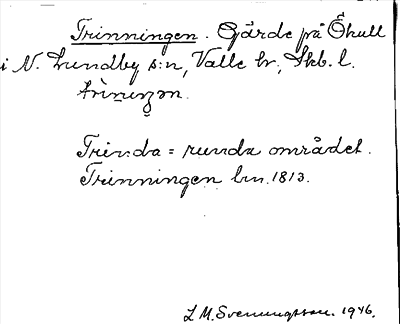 Trinningen. Gärde på Öhull
i N. Lundby s:n, Valle hd., Skb. l.
Trinda = runda området.
Trinningen hm. 1813.
L M. Svenungsson. 1946.